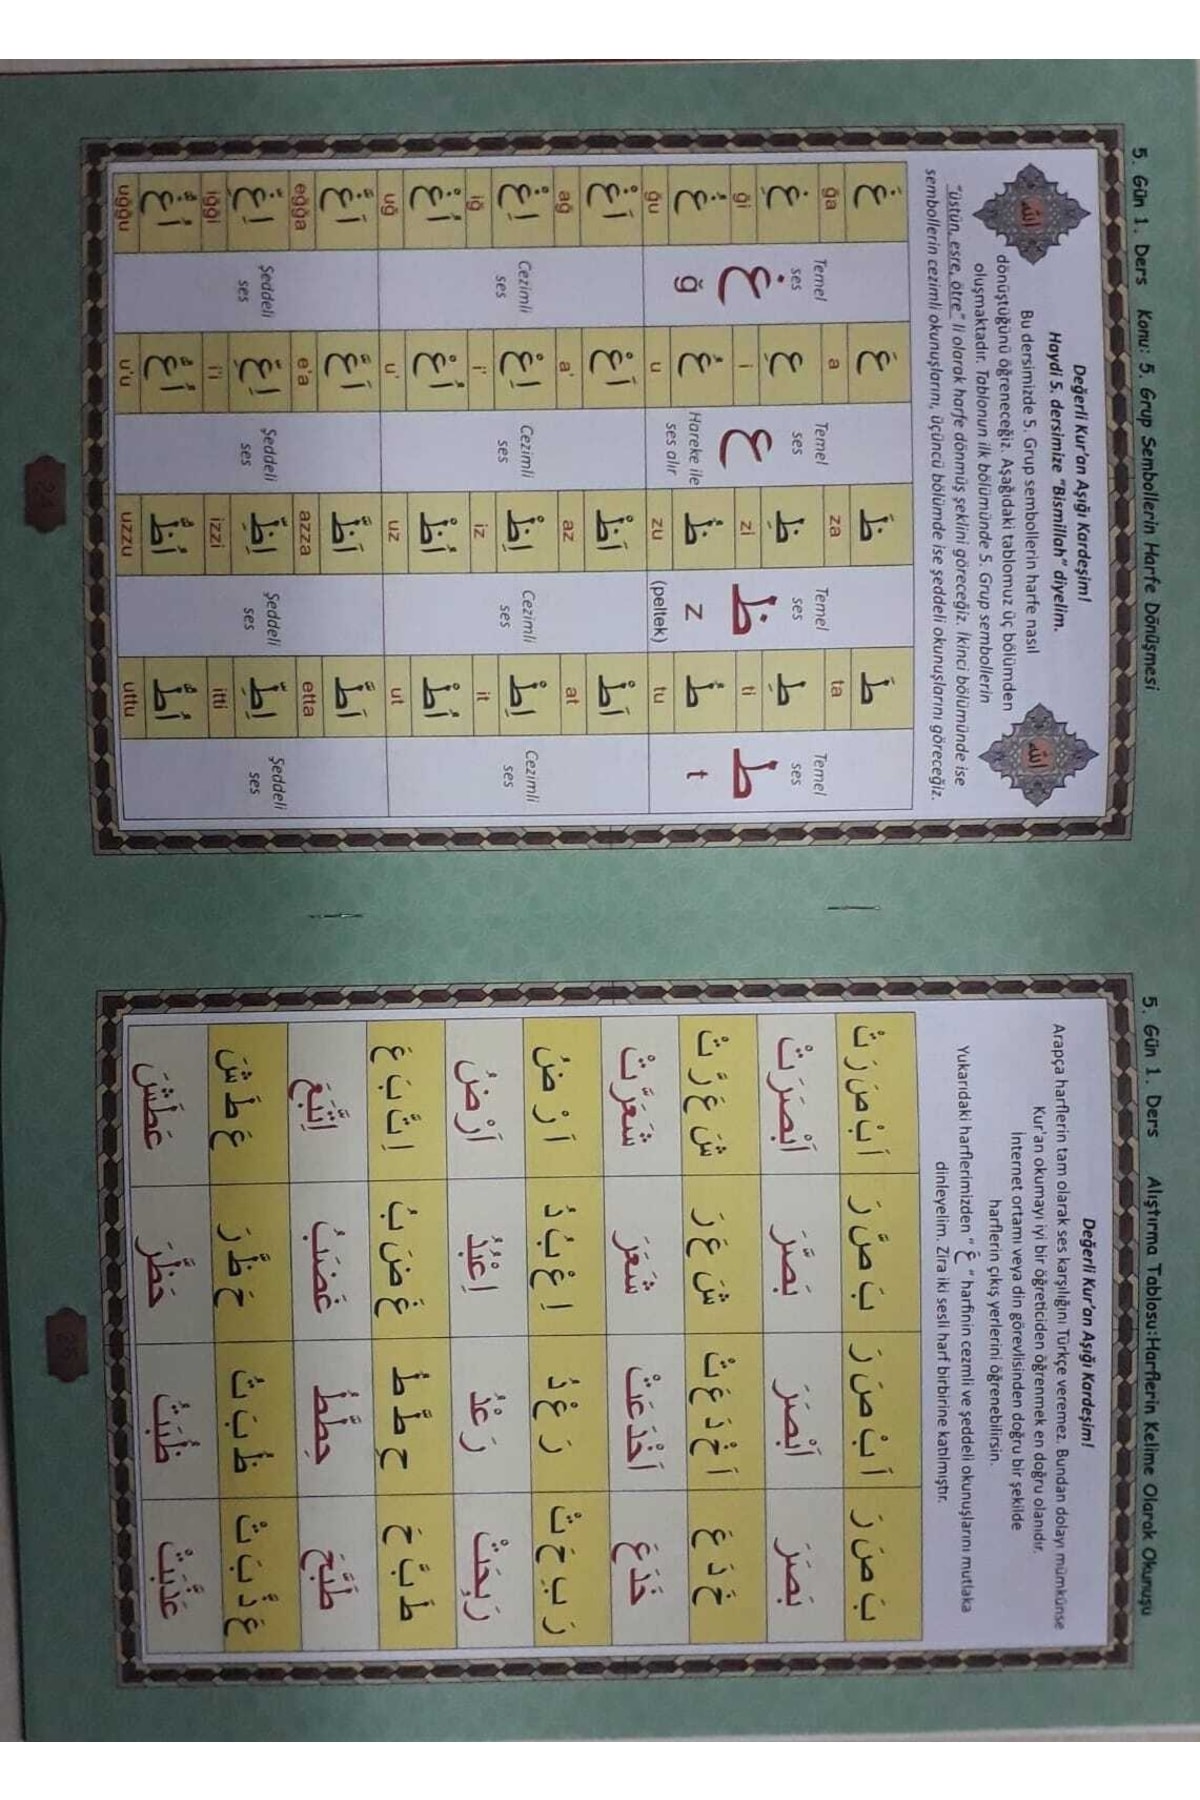 5. Gün 1. Ders Konu: 5. Grup Sembollerin Harfe Dönüşmesi
Değerli Kur'an Aşığı Kardeşim!
Haydi 5. dersimize "Bismillah" diyelim.
Bu dersimizde 5. Grup sembollerin harfe nasıl
dönüştüğünü öğreneceğiz. Aşağıdaki tablomuz üç bölümden
oluşmaktadır. Tablonun ilk bölümünde 5. Grup sembollerin
"üstün, esre, ötre" li olarak harfe dönmüş şeklini göreceğiz. İkinci bölümünde ise
sembollerin cezimli okunuşlarını, üçüncü bölümde ise şeddeli okunuşlarını göreceğiz.
الله
الله
غَ Temel ses عَ Temel ses ظَ Temel ses طَ Temel ses
ğa a za ta
غِ غ عِ ع ظِ ظ طِ ط
ği i zi ti
غُ ğ عُ Hareke ile ses alır ظُ z طُ t
ğu u zu (peltek) tu
اَغْ Cezimli ses اَعْ Cezimli ses اَظْ Cezimli ses اَطْ Cezimli ses
ağ a' az at
اِغْ اِعْ اِظْ اِطْ
iğ i' iz it
اُغْ اُعْ اُظْ اُطْ
uğ u' uz ut
اَغَّ Şeddeli ses اَعَّ Şeddeli ses اَظَّ Şeddeli ses اَطَّ Şeddeli ses
eğğa e'a azza etta
اِغِّ اِعِّ اِظِّ اِطِّ
iğği i'i izzi itti
اُغُّ اُعُّ اُظُّ اُطُّ
uğğu u'u uzzu uttu
24
5. Gün 1. Ders Alıştırma Tablosu:Harflerin Kelime Olarak Okunuşu
Değerli Kur'an Aşığı Kardeşim!
Arapça harflerin tam olarak ses karşılığını Türkçe veremez. Bundan dolayı mümkünse
Kur'an okumayı iyi bir öğreticiden öğrenmek en doğru olanıdır.
İnternet ortamı veya din görevlisinden doğru bir şekilde
harflerin çıkış yerlerini öğrenebilirsin.
Yukarıdaki harflerimizden " عْ " harfinin cezmli ve şeddeli okunuşlarını mutlaka
dinleyelim. Zira iki sesli harf birbirine katılmıştır.
بَ صَ رَ اَ بْ صَ رَ بَ صَّ رَ اَ بْ صَ رَ تْ
بَصَرَ اَبْصَرَ بَصَّرَ اَبْصَرَتْ
خَ دَ عَ اَ خْ دَ عَ تْ شَ عَ رَ شَ عَ رَّ تْ
خَدَعَ اَخْدَعَتْ شَعَرَ شَعَرَّتْ
رَ بِ حَ تْ رَ عْ دُ اِ عْ بُ دُ اَ رْ ضُ
رَبِحَتْ رَعْدُ اِعْبُدُ اَرْضُ
طَ بَّ حَ حِ طَّ طُ غَ ضَ بُ اِ تَّ بَ عَ
طَبَّحَ حِطَّطُ غَضَبُ اِتَّبَعَ
عَ ذَّ بَ تْ ظُ بَ تُ حَ ظَّ رَ عَ طَ شَ
عَذَّبَتْ ظُبَتُ حَظَّرَ عَطَشَ
25